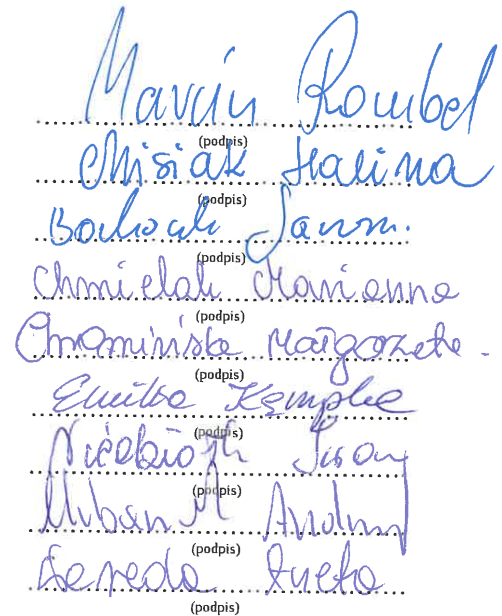 Marcin Rombel
(podpis)
Misiak Halina
(podpis)
(podpis)
Chmielak Marianna
(podpis)
Chromińska Małgorzata
(podpis)
Emilia Kempka
(podpis)
(podpis)
Urban Andrzej
(podpis)
Sereda Aneta
(podpis)